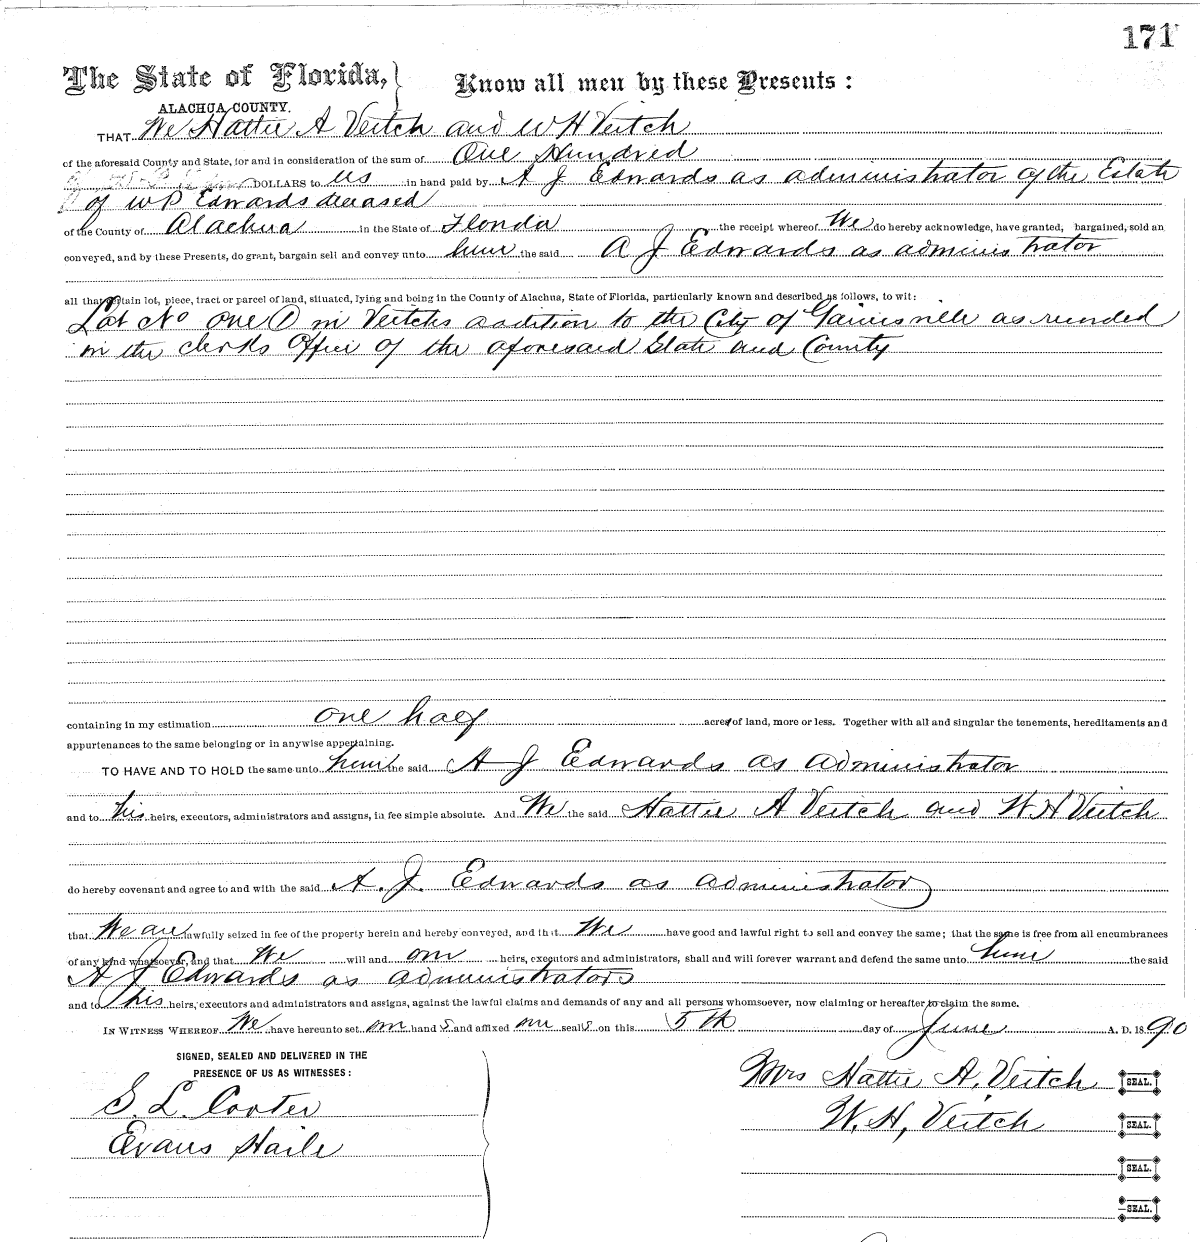 171
The State of Florida, Know all men by these Presents:
ALACHUA COUNTY.
THAT We Hattie A Veitch and W H Veitch
of the aforesaid County and State, for and in consideration of the sum of One Hundred
DOLLARS to us in hand paid by A J Edwards as administrator of the Estate
of W P Edwards deceased
of the County of Alachua in the State of Florida the receipt whereof We do hereby acknowledge, have granted, bargained, sold an
conveyed, and by these Presents, do grant, bargain sell and convey unto him the said A J Edwards as administrator
all that certain lot, piece, tract or parcel of land, situated, lying and being in the County of Alachua, State of Florida, particularly known and described as follows, to wit:
Lot No one (1) in Veitchs addition to the City of Gainesville as recorded
in the clerks Office of the aforesaid State and County
containing in my estimation one half acre of land, more or less. Together with all and singular the tenements, hereditaments and
appurtenances to the same belonging or in anywise appertaining.
TO HAVE AND TO HOLD the same unto him the said A J Edwards as administrator
and to his heirs, executors, administrators and assigns, in fee simple absolute. And We the said Hattie A Veitch and W H Veitch
do hereby covenant and agree to and with the said A. J. Edwards as administrator
that We are lawfully seized in fee of the property herein and hereby conveyed, and that We have good and lawful right to sell and convey the same; that the same is free from all encumbrances
of any kind whatsoever, and that We will and our heirs, executors and administrators, shall and will forever warrant and defend the same unto him the said
A J Edwards as administrators
and to his heirs, executors and administrators and assigns, against the lawful claims and demands of any and all persons whomsoever, now claiming or hereafter to claim the same.
IN WITNESS WHEREOF We have hereunto set our hand s and affixed our seals on this 5th day of June A. D. 1890
SIGNED, SEALED AND DELIVERED IN THE
PRESENCE OF US AS WITNESSES:
Mrs Hattie A. Veitch SEAL.
S. L. Carter
W. H. Veitch SEAL.
Evans Haile
SEAL.
SEAL.